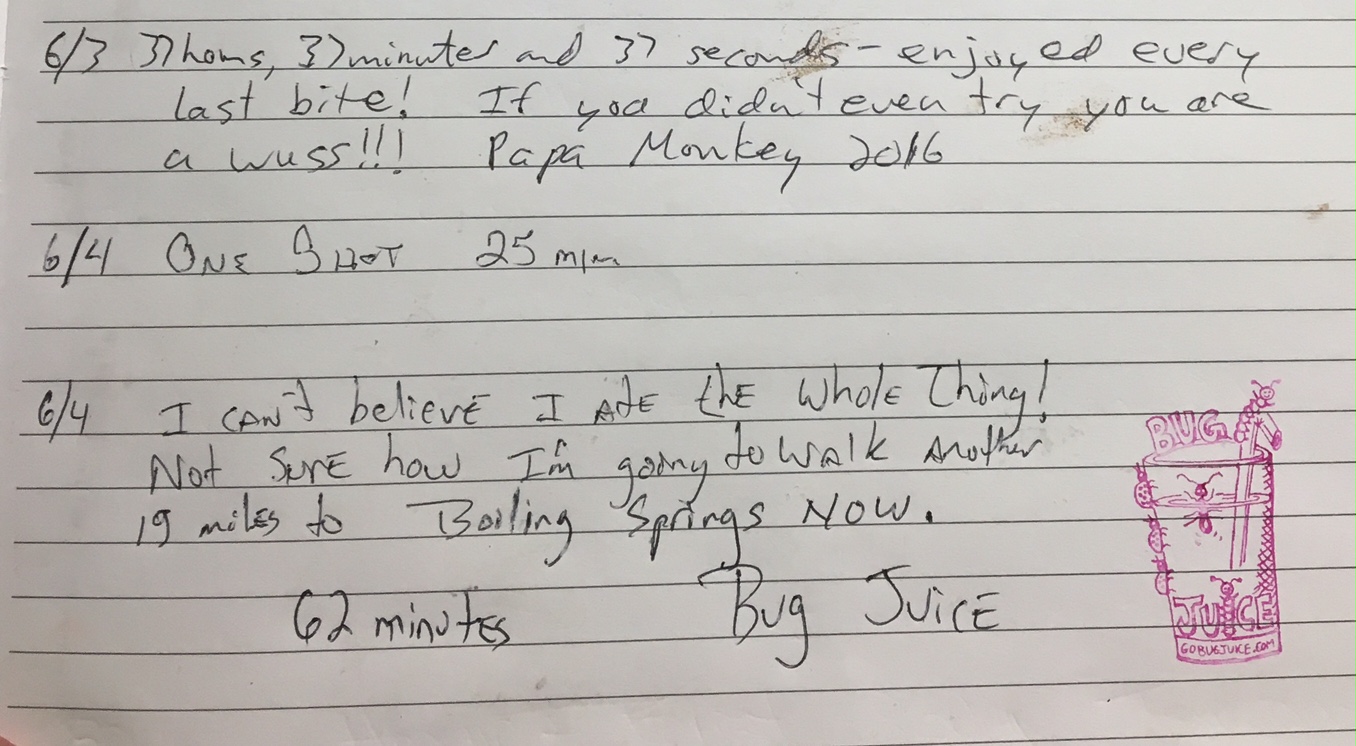 6/3 37 hours, 37 minutes and 37 seconds - enjoyed every
last bite! If you didn't even try you are
a wuss!!! Papa Monkey 2016
6/4 ONE SHOT 25 min
6/4 I CAN'T believE I AtE thE WholE Thing!
Not SurE how I'm going to WAlk ANother
19 milEs to Boiling Springs NOW.
62 minutEs Bug JuicE
BUG
JUICE
GOBUGJUICE.COM